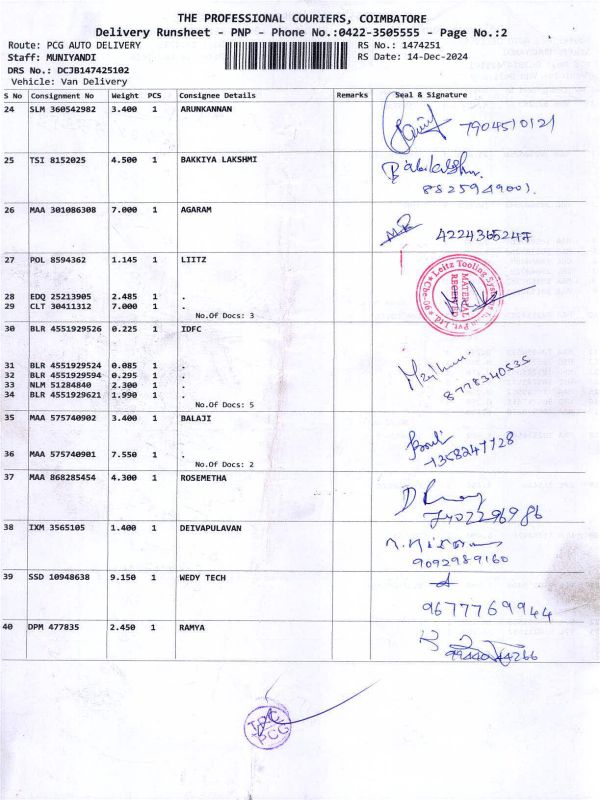 THE PROFESSIONAL COURIERS, COIMBATORE
Delivery Runsheet - PNP - Phone No.:0422-3505555 - Page No.:2
Route: PCG AUTO DELIVERY RS No.: 1474251
Staff: MUNIYANDI RS Date: 14-Dec-2024
DRS No.: DCJB147425102
Vehicle: Van Delivery
S No Consignment No Weight PCS Consignee Details Remarks Seal & Signature
24 SLM 360542982 3.400 1 ARUNKANNAN
7904510121
25 TSI 8152025 4.500 1 BAKKIYA LAKSHMI
26 MAA 301086308 7.000 1 AGARAM
4224365247
27 POL 8594362 1.145 1 LIITZ
Leitz Tooling Systems
MATERIAL
Pvt. Ltd.
28 EDQ 25213905 2.485 1 .
29 CLT 30411312 7.000 1 .
No.Of Docs: 3
30 BLR 4551929526 0.225 1 IDFC
31 BLR 4551929524 0.085 1 .
32 BLR 4551929594 0.295 1 .
33 NLM 51284840 2.300 1 .
34 BLR 4551929621 1.990 1 .
No.Of Docs: 5
8778340535
35 MAA 575740902 3.400 1 BALAJI
36 MAA 575740901 7.550 1 .
No.Of Docs: 2
37 MAA 868285454 4.300 1 ROSEMETHA
7402296986
38 IXM 3565105 1.400 1 DEIVAPULAVAN
9092989160
39 SSD 10948638 9.150 1 WEDY TECH
9677769944
40 DPM 477835 2.450 1 RAMYA
PCG